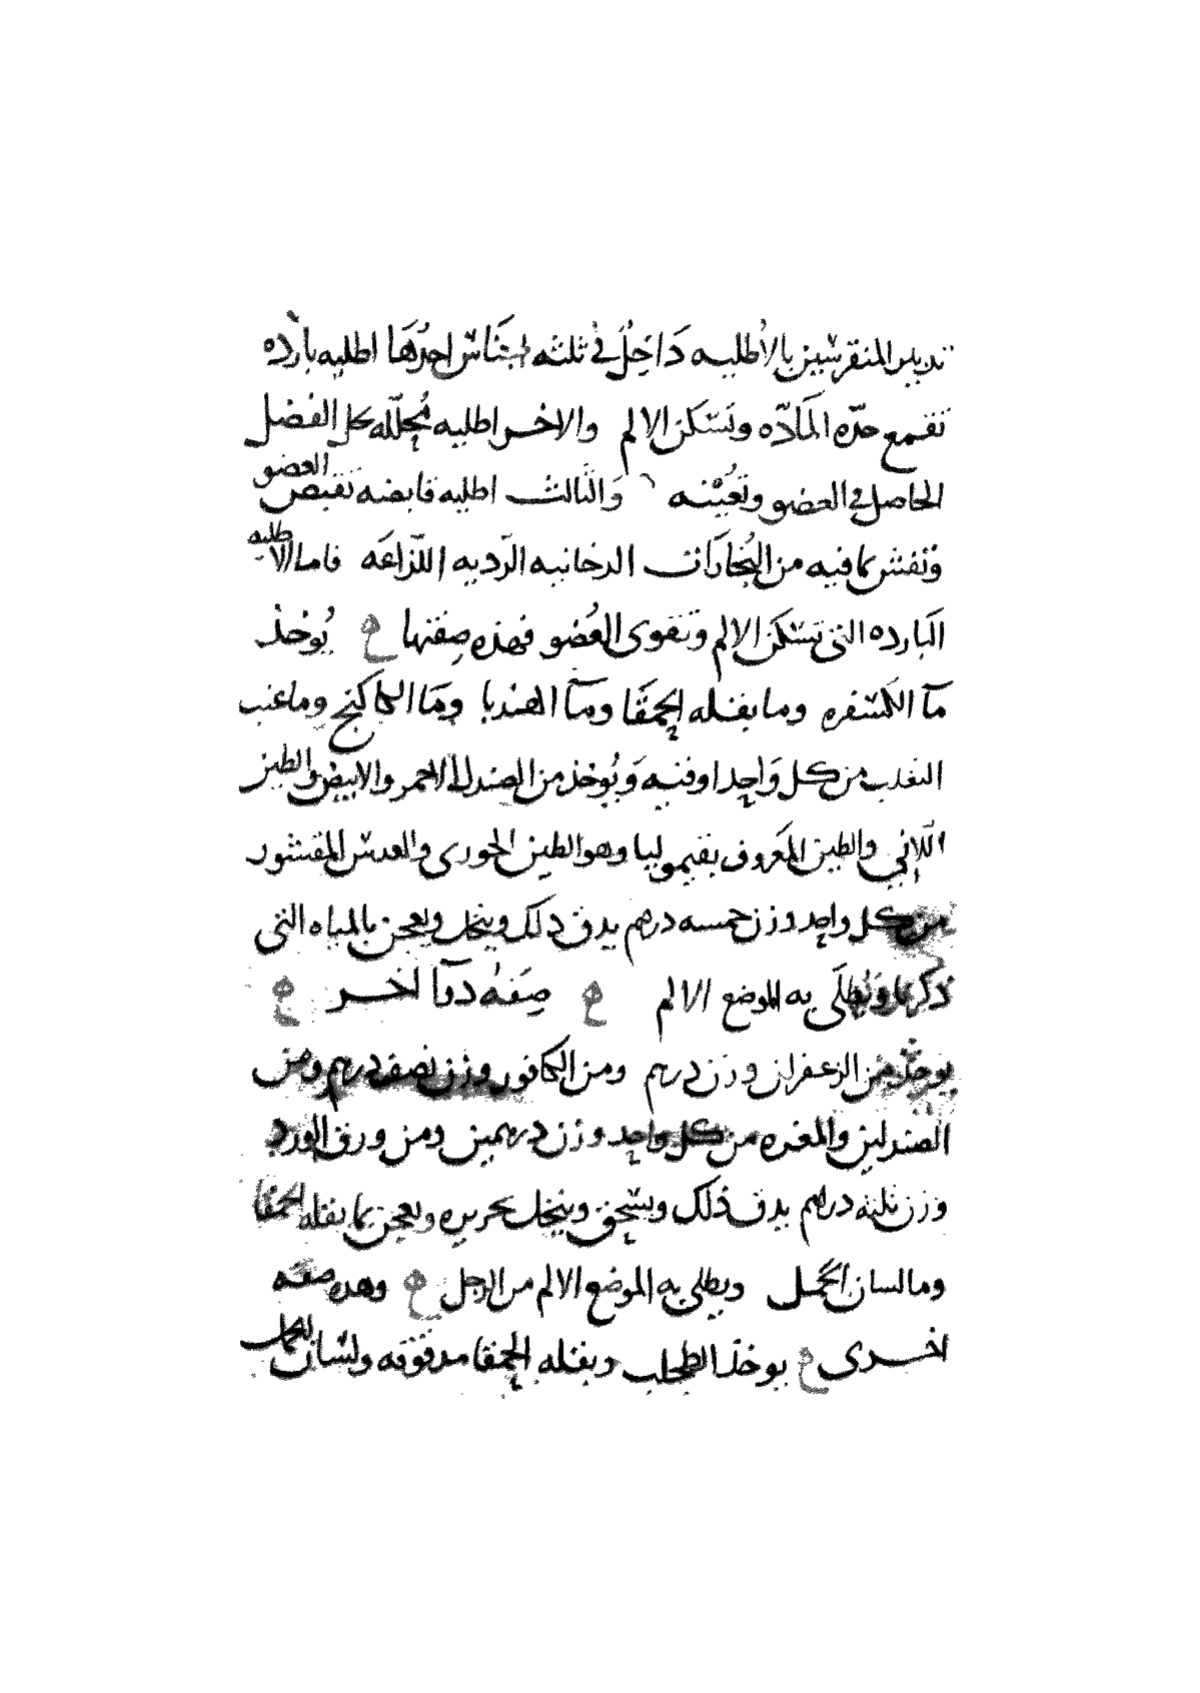 تدبير المنقرسين بالأطليه دَاخِلُ في ثلثه اجنَاس احدُهَا اطليه بارده
تقمع حدّه المَادّه وتسَكن الالم والاخر اطليه مُحلّله كل الفضل
الحاصل في العضو وتعُيْنه وَالثَالث اطليه قابضه تقبض العضو
وتفش ما فيه من البُخارَات الدخانيه الرّديه اللّزاعَه فاما الاطليه
البَارده التي تسَكن الالم وتقوى العُضو فهذه صِفتها يُوخذ
مآ الكسَفره وما بقله الحمقَا ومآ الهندبا ومَا الكاكنج وما عنب
الثعلب من كل وَاحِد اوقيه وَيُوخذ من الصندل الاحمر والابيض والطين
اللّانِي والطين المعَروف بقيموليا وهو الطين الحورى والعدس المقشور
من كل واحِد وزن خمسه درهم يدق ذلك وينخل ويعجن بالمياه التي
ذكرنا ويُطلَى به الموضع الالم صِفهُ دوآ اخر
يوخذ من الزعفران وزن درهم ومن الكافور وزن نصف درهم ومن
الصندلين والمغره من كل واحِد وزن درهمين ومن ورق الورد
وزن ثلثه دراهم يدق ذلك ويسحق وينخل بحريره ويعجن بما بقله الحمقا
وما لسان الحمل ويطلى به الموضع الالم من الرجل وهذه صفه
اخرى يوخذ الطحلب وبقله الحمقا مدقوقه ولسَان الحمل